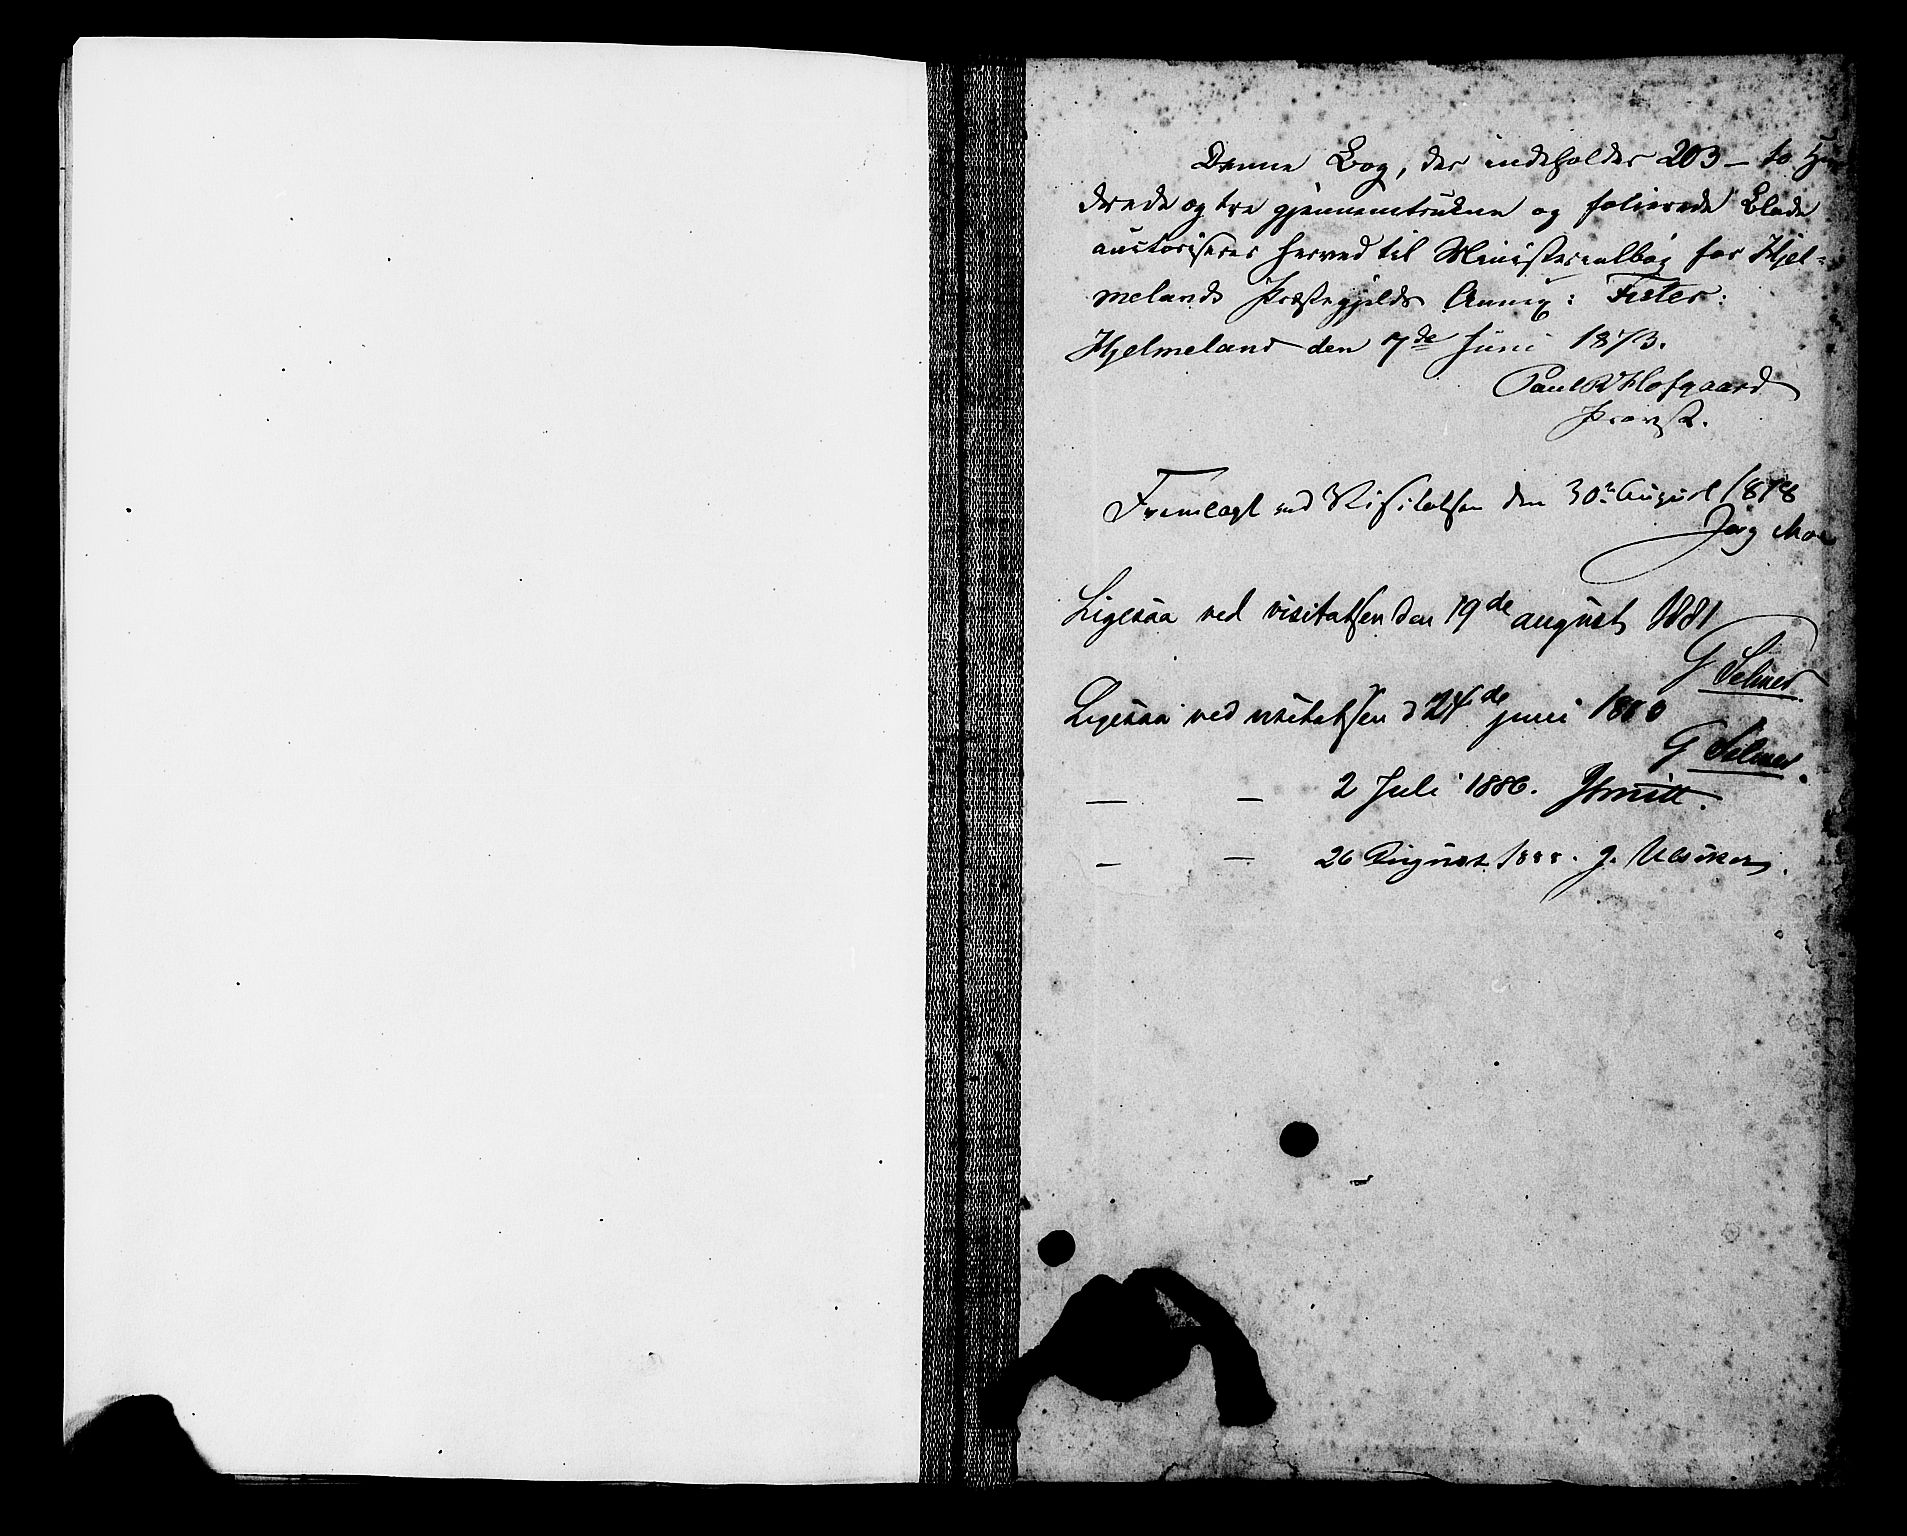 Denne Bog, der indeholder 203 – to Hun
drede og tre gjennemtrukne og folierede Blade
auctoriseres herved til Ministerialbog for Hjel-
melands Præstegjelds Annex: Fister:
Hjelmeland den 7de Juni 1873.
Paul R Hofgaard
Provst.
Fremlagt ved Visitatsen den 30te August 1878
Jørg Moe
Ligesaa ved visitatsen den 19de august 1881
G Selmer
Ligesaa ved visitatsen d 24de juni 1880
G Selmer.
— — 2 Juli 1886. JSmitt.
— — 26 August 1888. J.